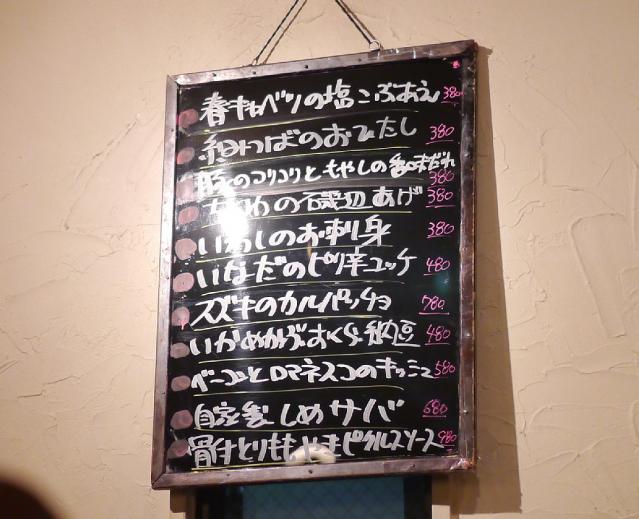 春キャベツの塩こぶあえ 380
糸みつばのおひたし 380
豚のコリコリともやしの香味だれ 380
ちくわの磯辺あげ 380
いわしのお刺身 380
いなだのピリ辛ユッケ 480
スズキのカルパッチョ 780
いかめかぶおくら納豆 480
ベーコンとロマネスコのキッシュ 580
自家製しめサバ 680
骨付とりももやきピクルスソース 980